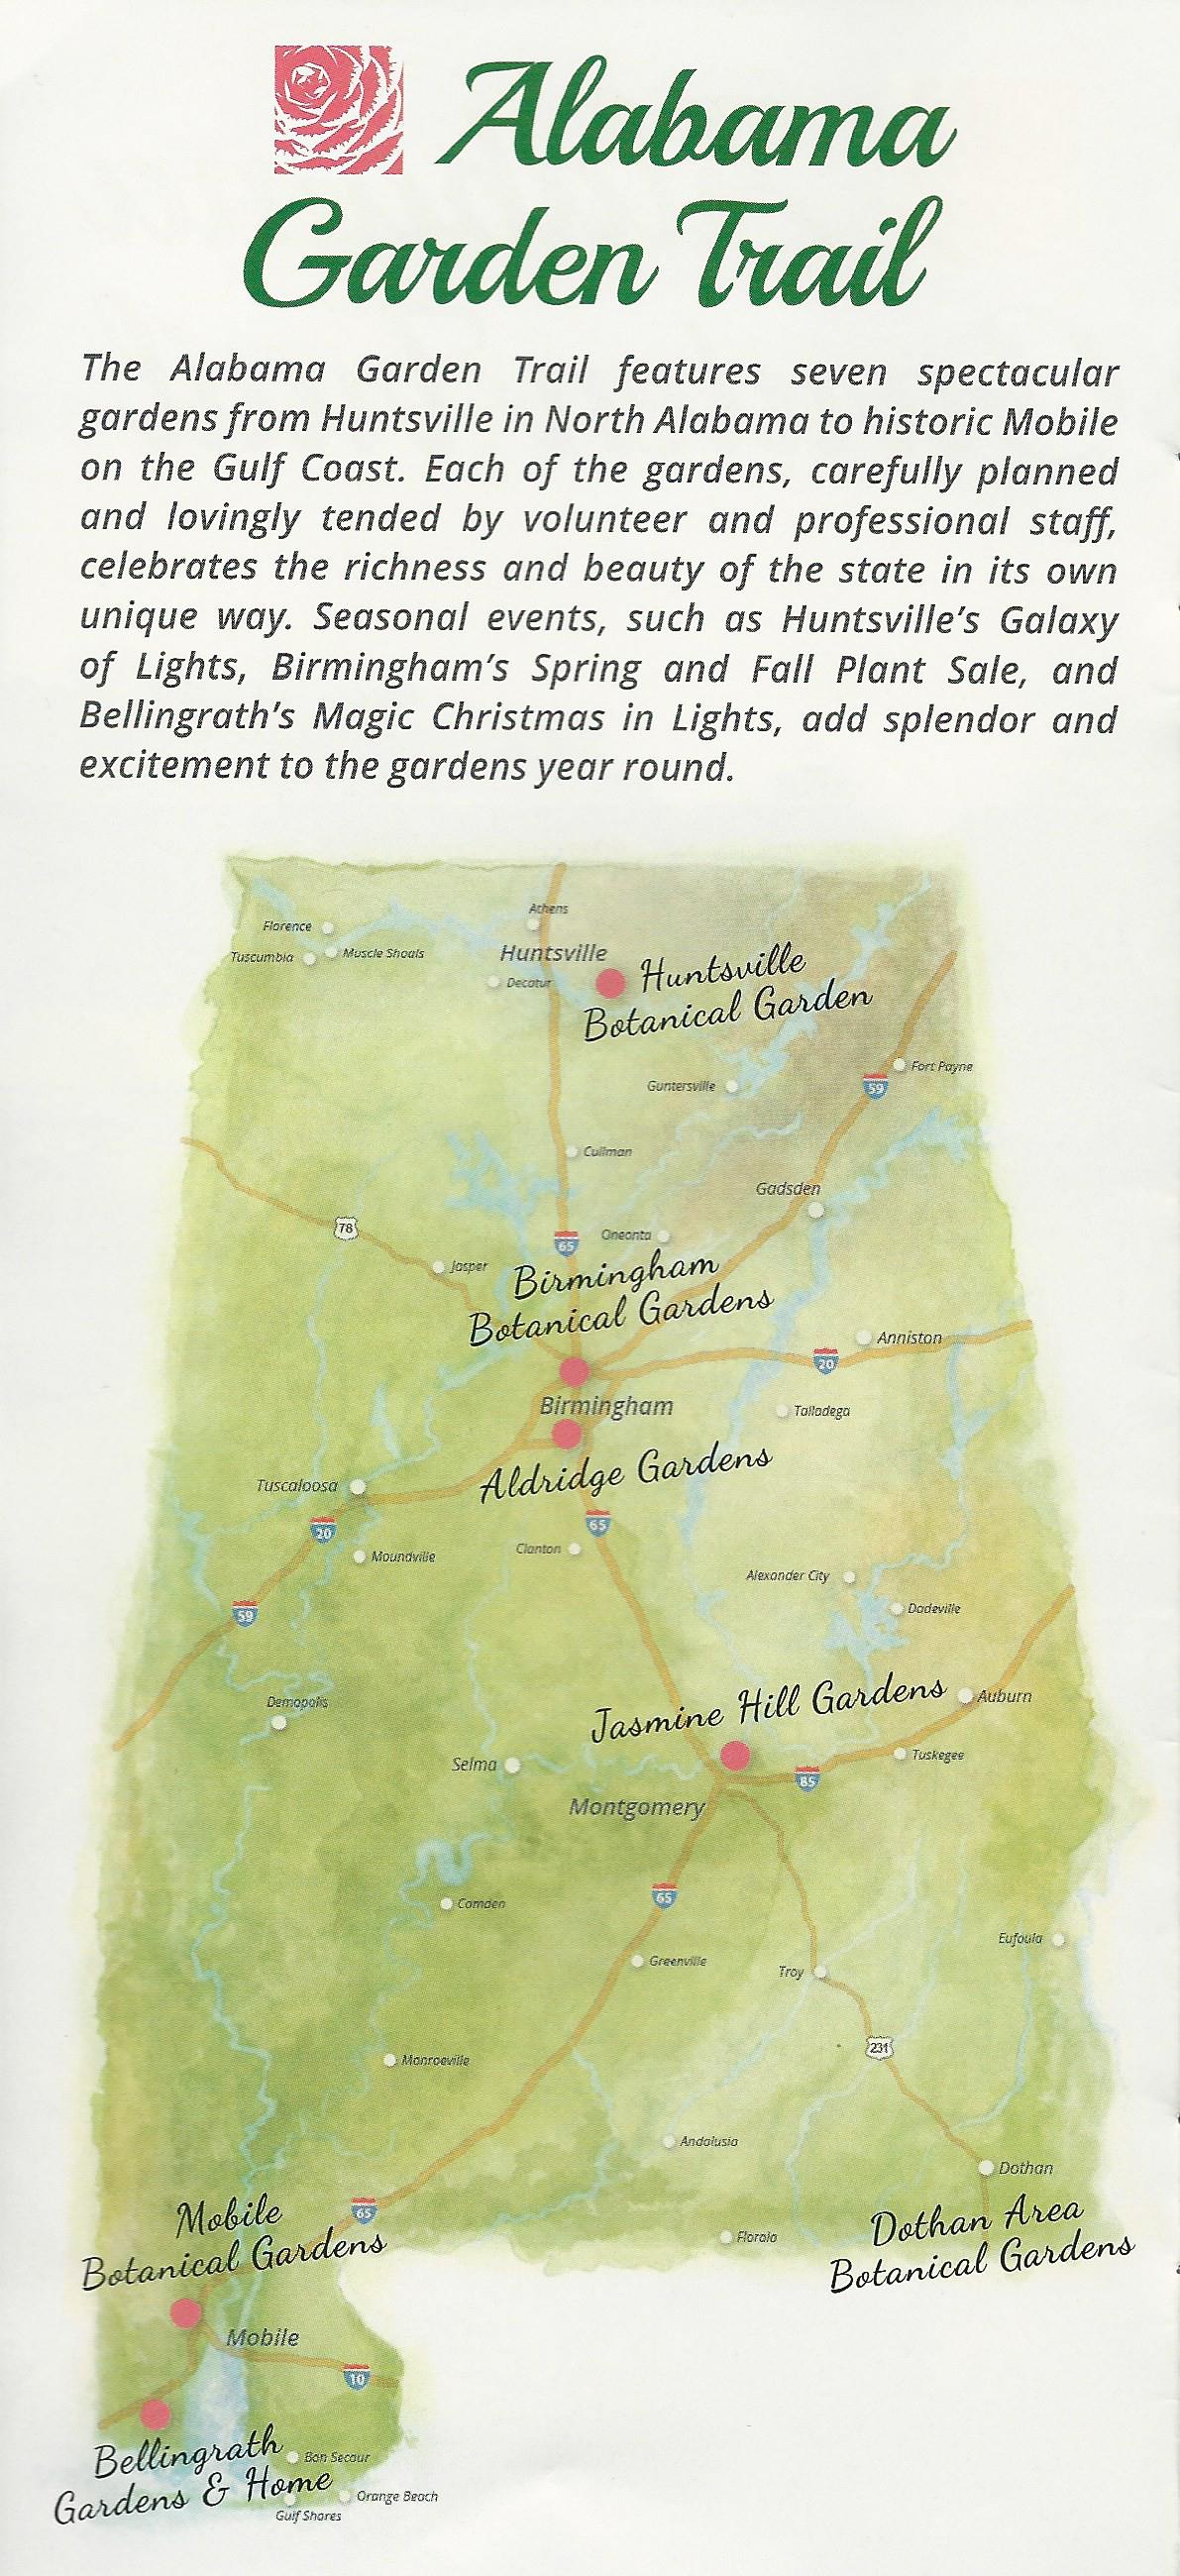 Alabama
Garden Trail
The Alabama Garden Trail features seven spectacular
gardens from Huntsville in North Alabama to historic Mobile
on the Gulf Coast. Each of the gardens, carefully planned
and lovingly tended by volunteer and professional staff,
celebrates the richness and beauty of the state in its own
unique way. Seasonal events, such as Huntsville's Galaxy
of Lights, Birmingham's Spring and Fall Plant Sale, and
Bellingrath's Magic Christmas in Lights, add splendor and
excitement to the gardens year round.
Athens
Florence
Muscle Shoals
Tuscumbia
Huntsville
Decatur
Huntsville
Botanical Garden
Fort Payne
Guntersville
59
Cullman
Gadsden
78
65
Oneonta
Jasper
Birmingham
Botanical Gardens
Anniston
20
Birmingham
Talladega
Aldridge Gardens
Tuscaloosa
20
65
Clanton
Moundville
Alexander City
Dadeville
59
Jasmine Hill Gardens
Auburn
Demopolis
Tuskegee
Selma
85
Montgomery
65
Camden
Eufaula
Greenville
Troy
231
Monroeville
Andalusia
Dothan
65
Mobile
Botanical Gardens
Florala
Dothan Area
Botanical Gardens
Mobile
10
Bellingrath
Gardens & Home
Bon Secour
Orange Beach
Gulf Shores